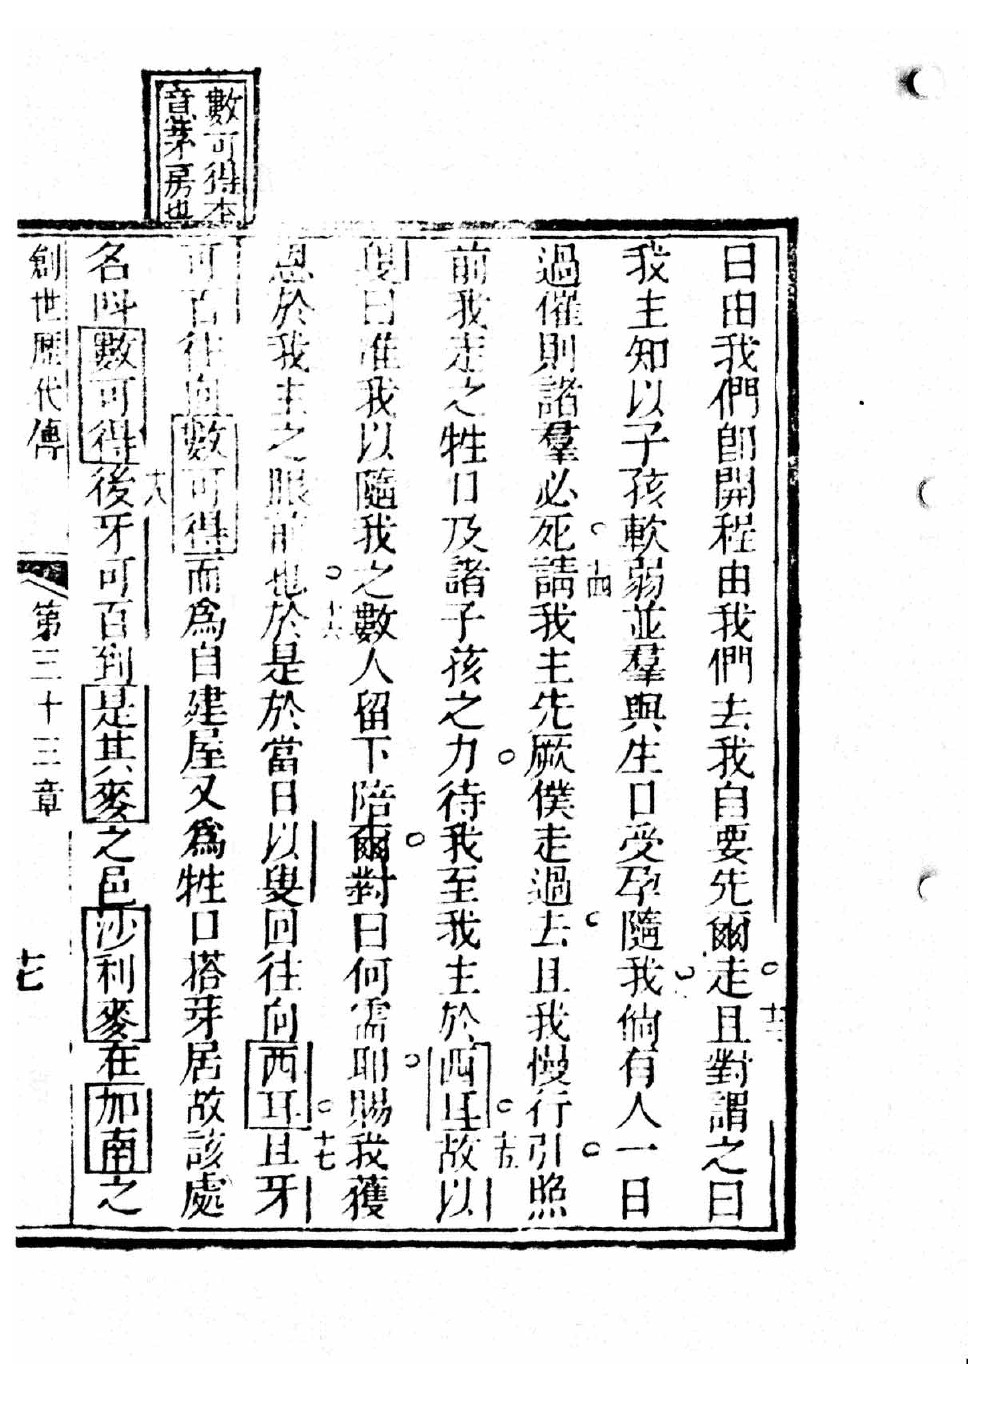 數可得本
意茅房也
曰由我們卽開程由我們去我自要先爾走且對謂之曰
十三
我主知以子孩軟弱並羣與生口受孕隨我倘有人一日
過催則諸羣必死請我主先厥僕走過去且我慢行引照
十四
前我走之牲口及諸子孩之力待我至我主於西耳故以
十五
叟曰准我以隨我之數人留下陪爾對曰何需耶賜我獲
恩於我主之眼前也於是於當日以叟回往向西耳且牙
十六
十七
可百往向數可得而為自建屋又為牲口搭芽居故該處
名呌數可得後牙可百到是其麥之邑沙利麥在加南之
十八
創世歷代傳
第三十三章
十七